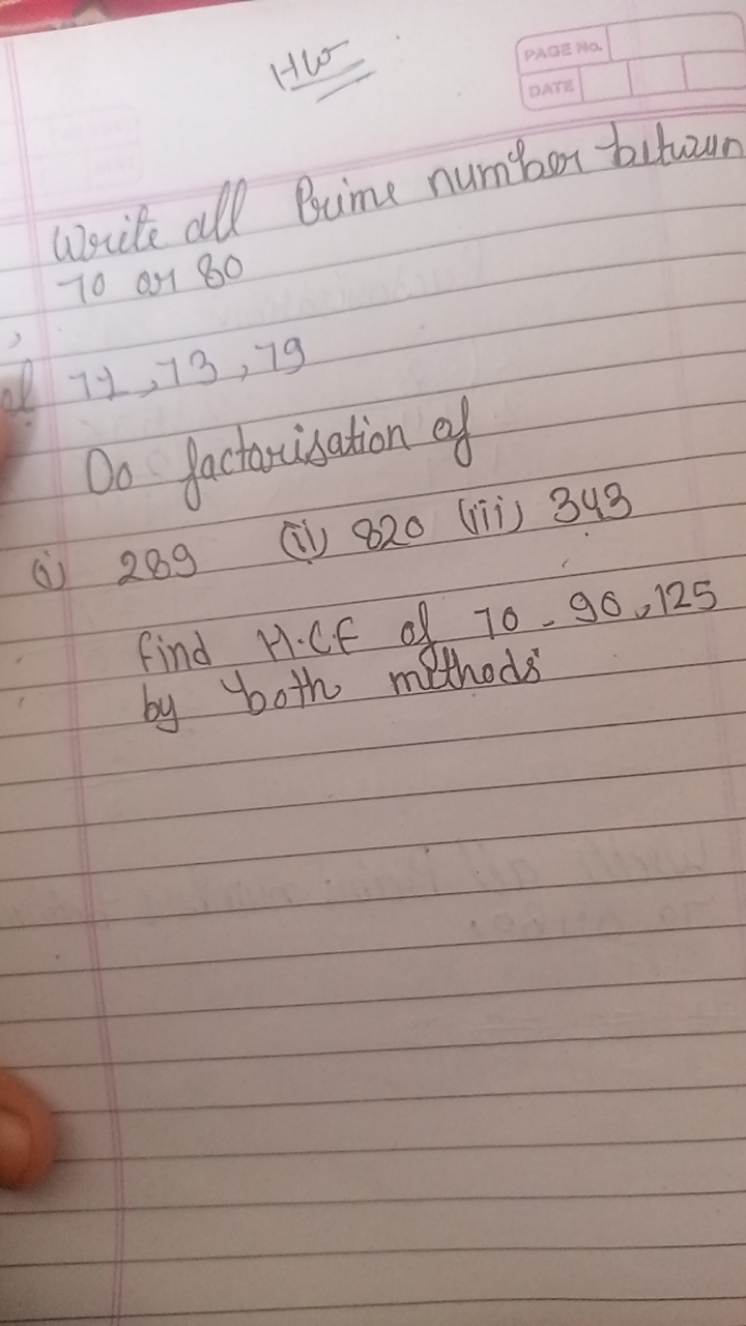 HW
PAGE No.
DATE
Write all Prime number between
70 or 80
71, 73, 79
Do factorisation of
(i) 289 (ii) 820 (iii) 343
find H.C.F of 70, 90, 125
by both methods